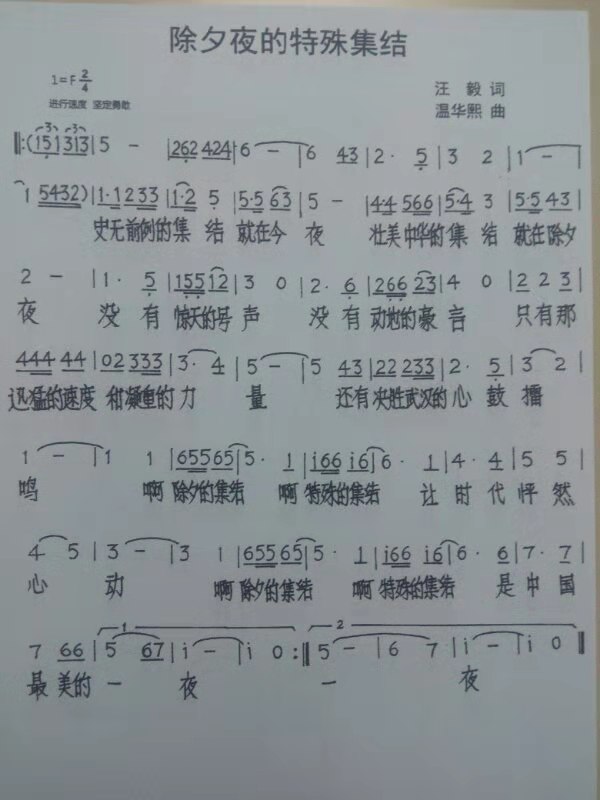 除夕夜的特殊集结
1=F 2/4
汪 毅 词
进行速度 坚定勇敢
温华熙 曲
‖:(151 313 | 5 - | 262 424 | 6 - | 6 43 | 2· 5 | 3 2 | 1 - |
1 5432) | 1·1 2 33 | 1·2 5 | 5·5 63 | 5 - | 4·4 566 | 5·4 3 | 5·5 43 |
史无前例的集 结 就在今 夜 壮美中华的集 结 就在除夕
2 - | 1· 5 | 155 12 | 3 0 | 2· 6 | 266 23 | 4 0 | 2 2 3 |
夜 没 有 惊天的号 声 没 有 动地的豪 言 只有那
444 44 | 02 333 | 3· 4 | 5 - | 5 43 | 22 233 | 2· 5 | 3 2 |
迅猛的速度 和凝重的 力 量 还有 决胜武汉的 心 鼓 擂
1 - | 1 1 | 655 65 | 5· 1 | i66 i6 | 6· 1 | 4· 4 | 5 5 |
鸣 啊 除夕的集结 啊 特殊的集结 让 时 代 怦 然
4 5 | 3 - | 3 1 | 655 65 | 5· 1 | i66 i6 | 6· 6 | 7· 7 |
心 动 啊 除夕的集结 啊 特殊的集结 是 中 国
1 2
7 66 | 5 67 | i - | i 0 :‖ 5 - | 6 7 | i - | i 0 ‖
最 美的 一 夜 一 夜